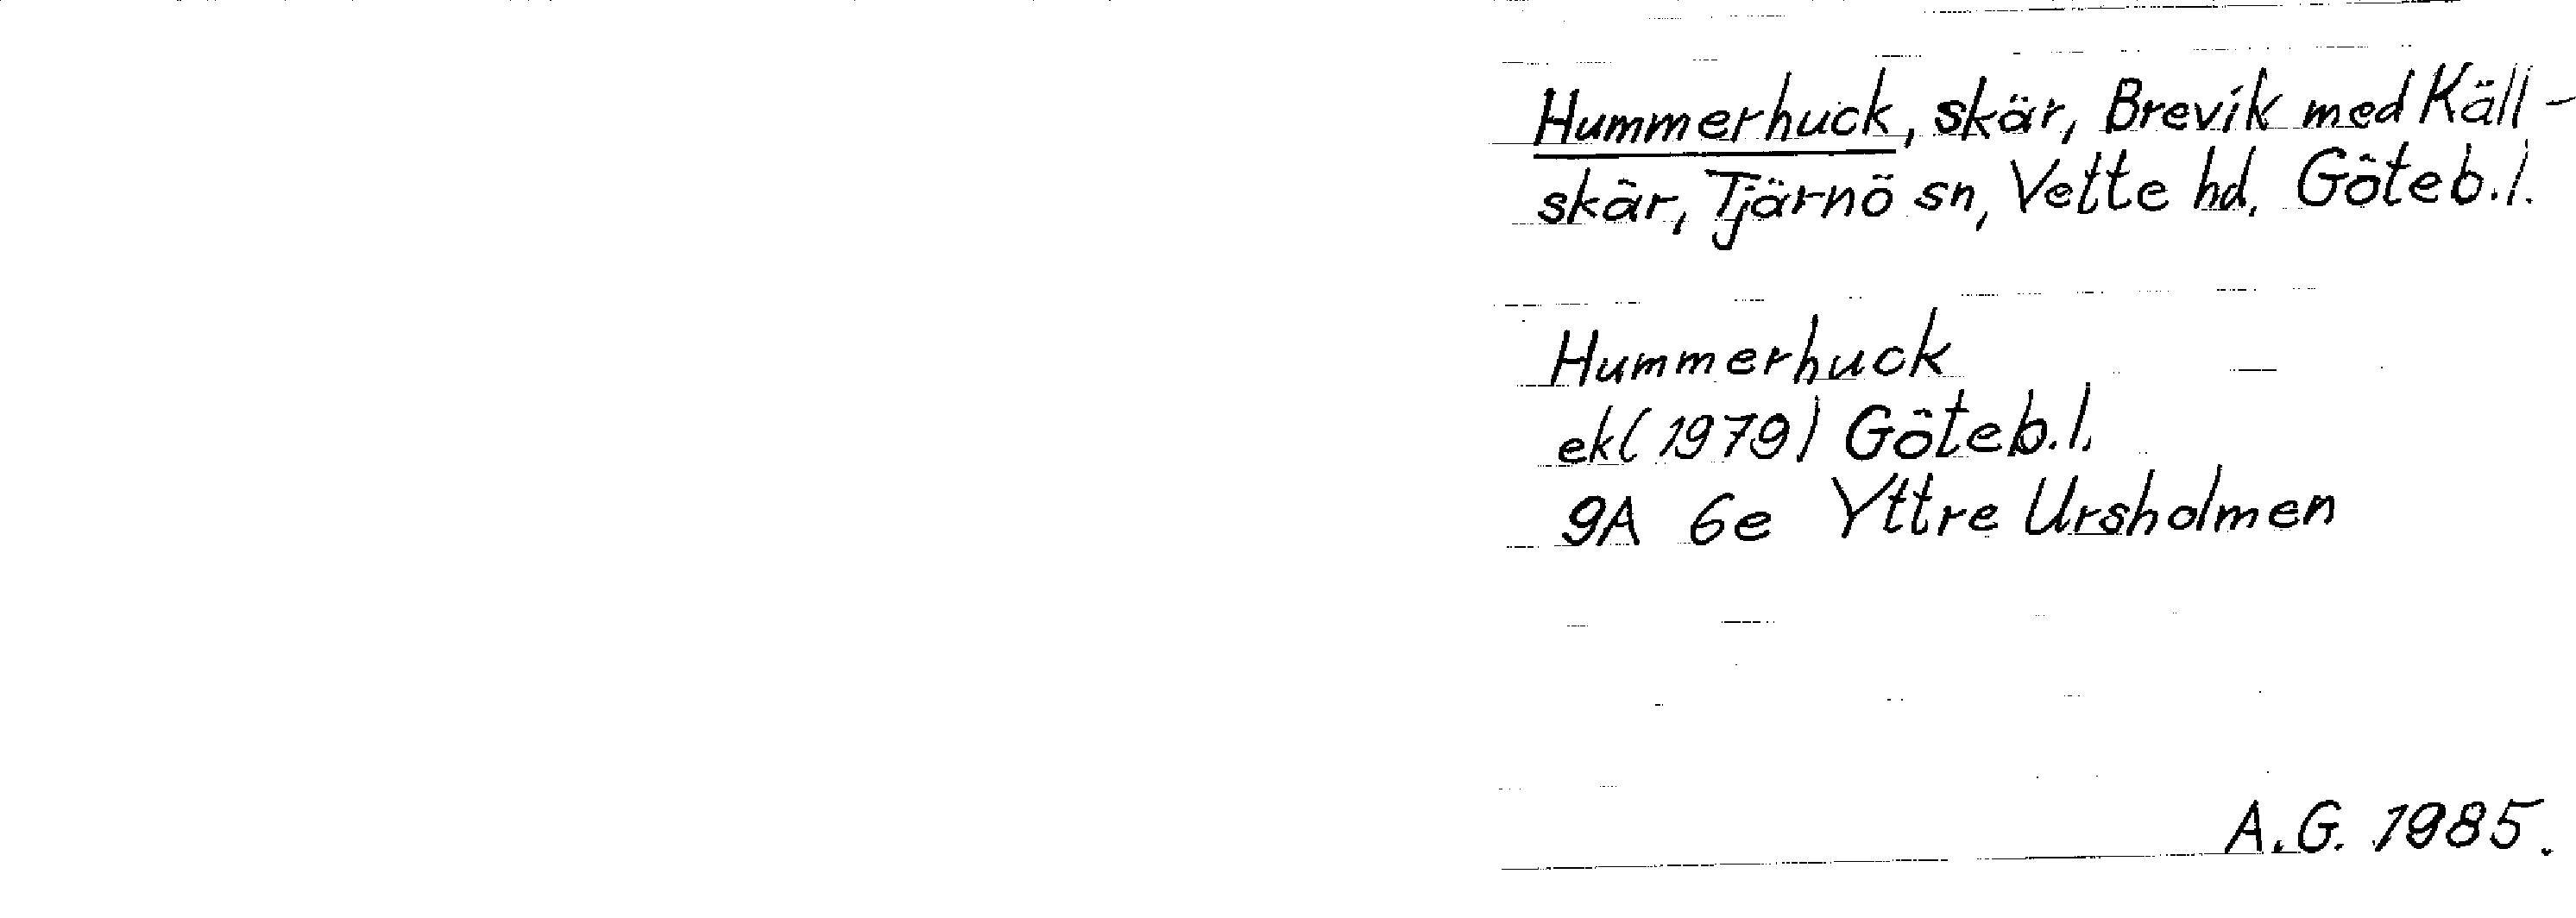 Hummerhuck, skär, Brevik med Käll-
skär, Tjärnö sn, Vette hd. Göteb.l.
Hummerhuck
ek(1979) Göteb.l.
9A 6e Yttre Ursholmen
A.G. 1985.